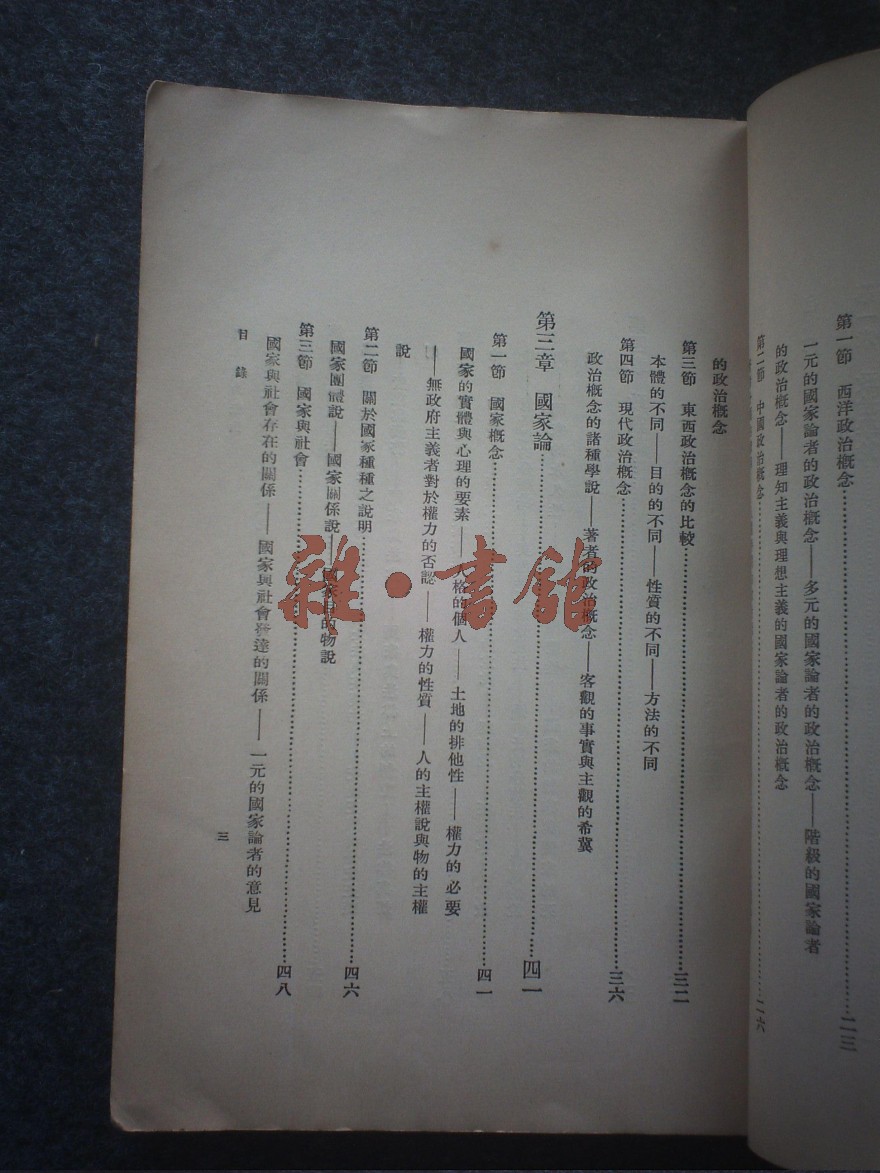 第一節　西洋政治概念……二二
一元的國家論者的政治概念——多元的國家論者的政治概念——階級的國家論者
的政治概念——理知主義與理想主義的國家論者的政治概念
第二節　中國政治概念……二六
的政治概念
第三節　東西政治概念的比較……三二
本體的不同——目的的不同——性質的不同——方法的不同
第四節　現代政治概念……三六
政治概念的諸種學說——著者的政治概念——客觀的事實與主觀的希冀
第三章　國家論……四一
第一節　國家概念……四一
國家的實體與心理的要素——人格的個人——土地的排他性——權力的必要
——無政府主義者對於權力的否認——權力的性質——人的主權說與物的主權
說
第二節　關於國家種種之說明……四六
國家團體說——國家關係說——國家目的物說
第三節　國家與社會……四八
國家與社會存在的關係——國家與社會發達的關係——一元的國家論者的意見
目錄
三
雜·書館